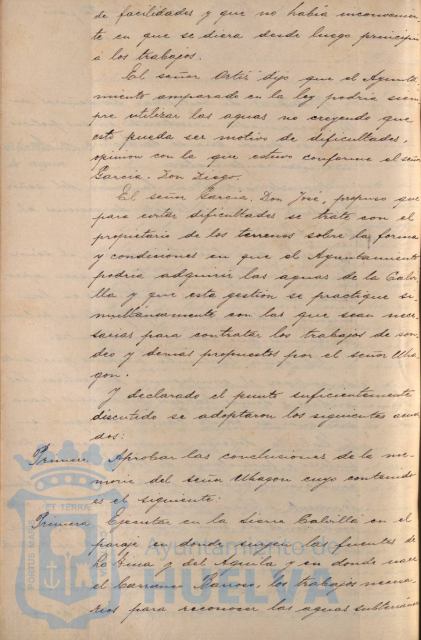 de facilidades y que no habia inconvenien-
te en que se diera desde luego principio
á los trabajos.
El señor Ortiz dijo que el Ayunta-
miento amparado en la ley podria siem-
pre utilizar las aguas no creyendo que
esto pueda ser motivo de dificultades,
opinion con la que estuvo conforme el señor
Garcia. Don Diego.
El señor Garcia, Don José, propuso que
para cortar dificultades se trate con el
propietario de los terrenos sobre la forma
y condiciones en que el Ayuntamiento
podria adquirir las aguas de la Calvi-
lla y que esta gestion se practique si-
multaneamente con las que sean nece-
sarias para contratar los trabajos de son-
deo y demas propuestos por el señor Uha-
gon.
Y declarado el punto suficientemente
discutido se adoptaron los siguientes acuer-
dos:
Primero Aprobar las conclusiones de la me-
moria del señor Uhagon cuyo contenido
es el siguiente:
Primera Ejecutar en la Sierra Calvilla en el
paraje en donde surgen las fuentes de
y del Aguila y en donde nace
el los trabajos necesa-
rios para reconocer las aguas subterrán
PORTUS MARIS ET TERRÆ
Ayuntamiento de
HUELVA